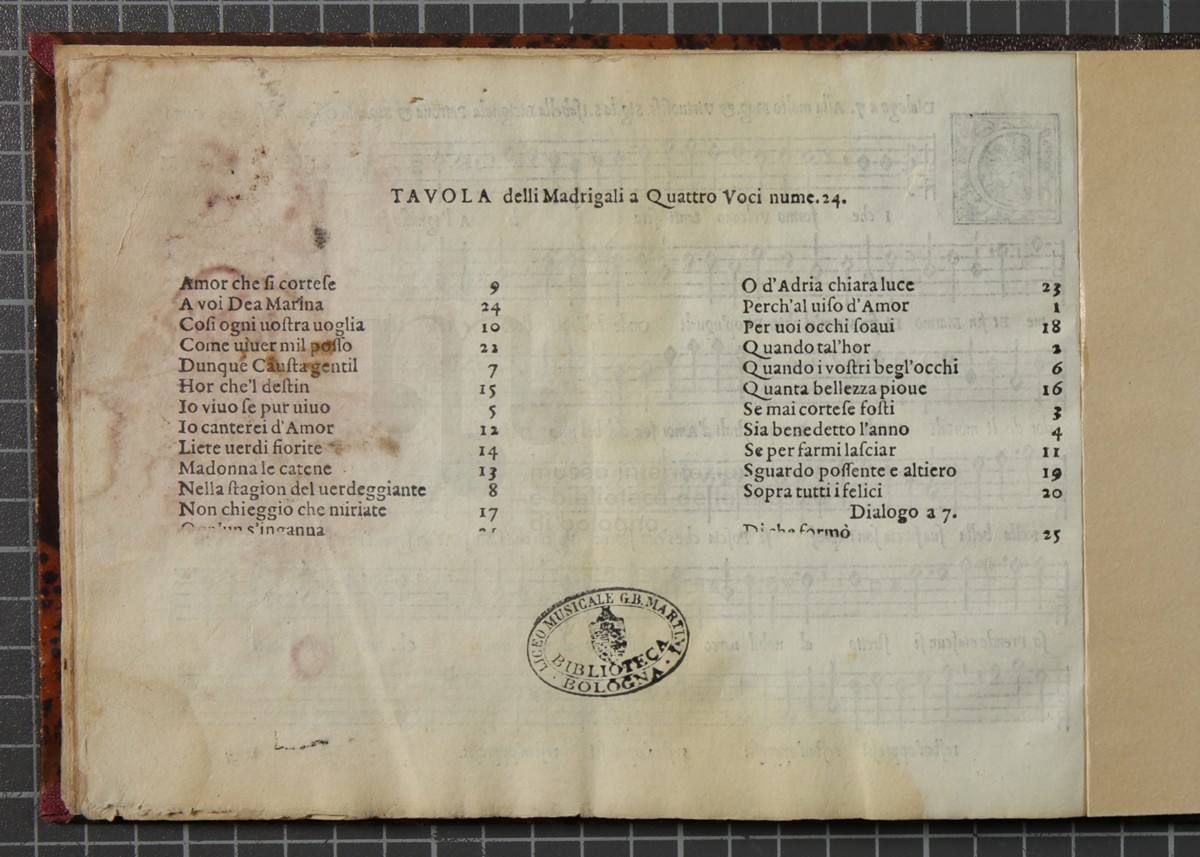 TAVOLA delli Madrigali a Quattro Voci nume. 24.
Amor che ſi corteſe 9
A voi Dea Marina 24
Coſi ogni uoſtra uoglia 10
Come uiuer mil poſſo 22
Dunque Cauſta gentil 7
Hor che'l deſtin 15
Io viuo ſe pur uiuo 5
Io canterei d'Amor 12
Liete uerdi fiorite 14
Madonna le catene 13
Nella ſtagion del uerdeggiante 8
Non chieggio che miriate 17
Ogn'un s'inganna 21
O d'Adria chiara luce 23
Perch'al uiſo d'Amor 1
Per uoi occhi ſoaui 18
Quando tal'hor 2
Quando i voſtri begl'occhi 6
Quanta bellezza pioue 16
Se mai corteſe foſti 3
Sia benedetto l'anno 4
Se per farmi laſciar 11
Sguardo poſſente e altiero 19
Sopra tutti i felici 20
Dialogo a 7.
Di che formò 25
LICEO MUSICALE G.B. MARTINI
BIBLIOTECA
BOLOGNA